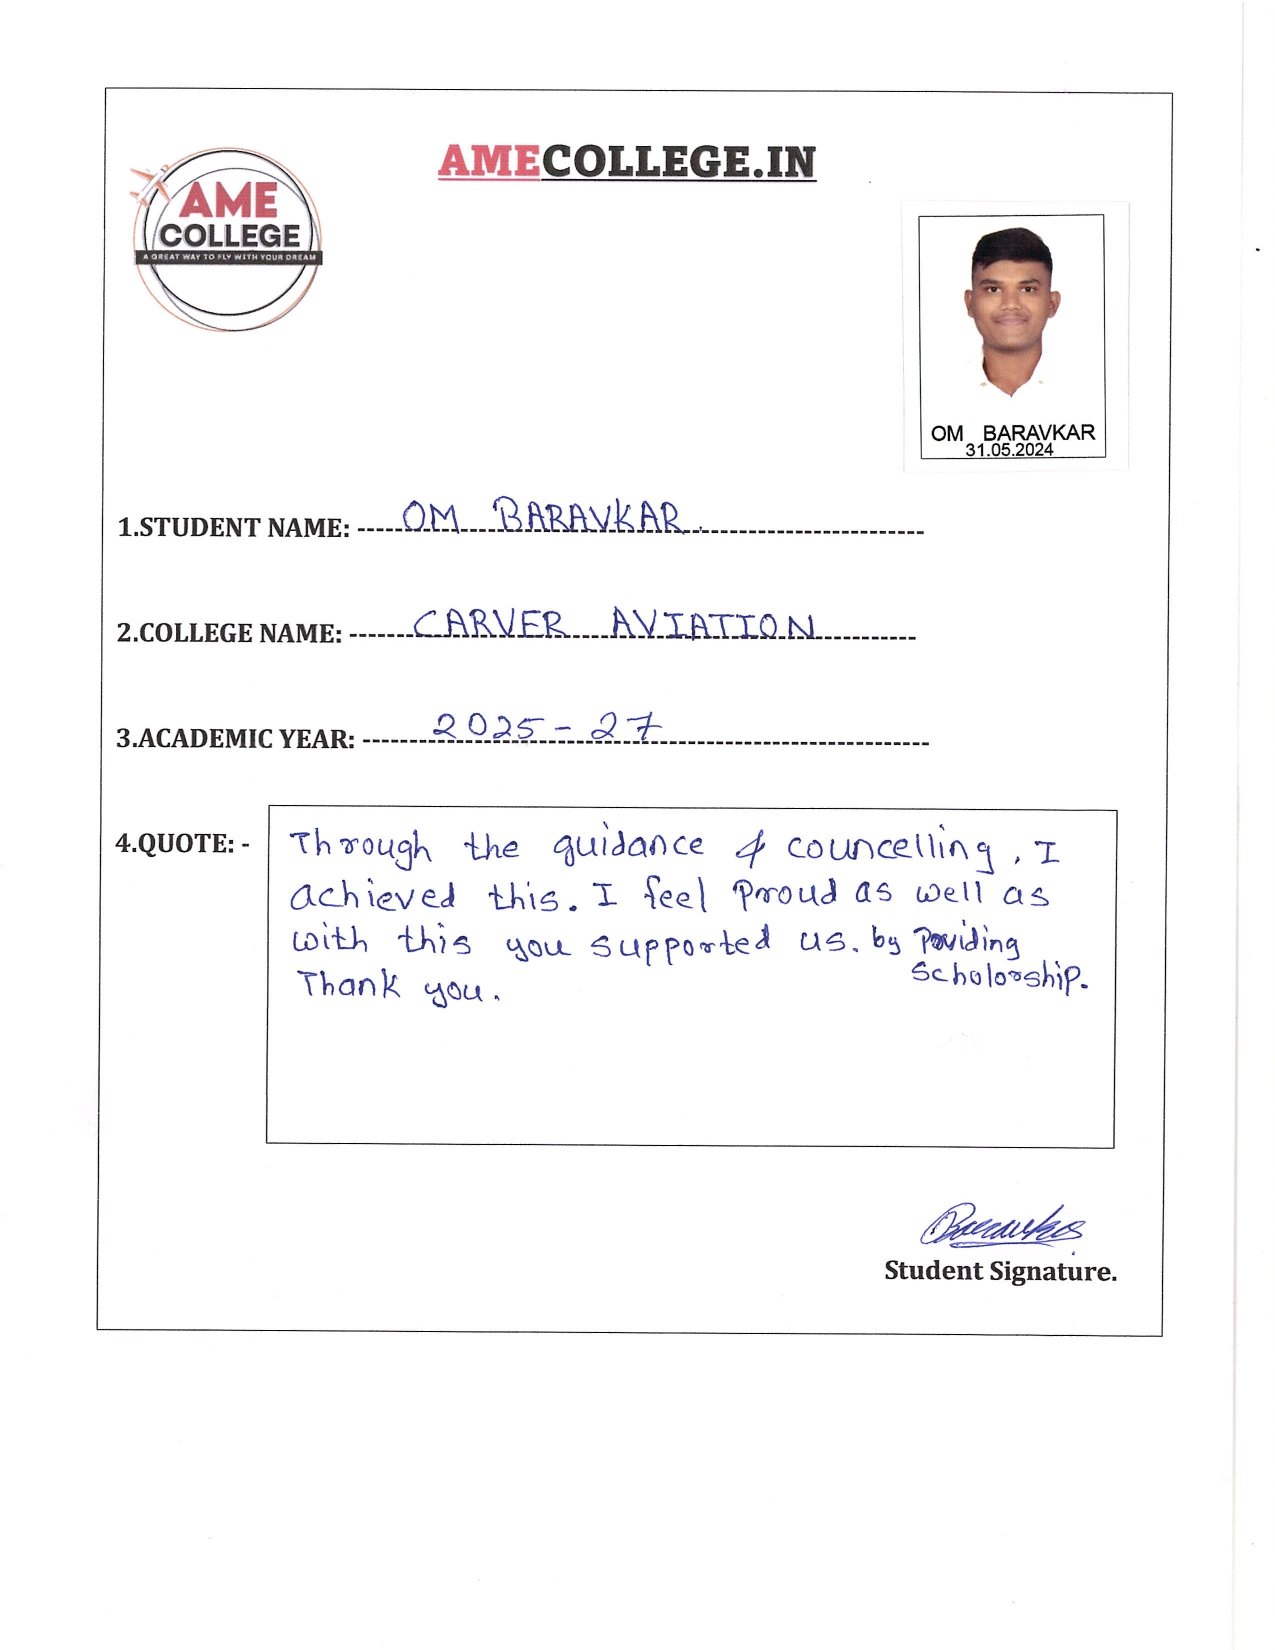 AMECOLLEGE.IN
AME
COLLEGE
A GREAT WAY TO FLY WITH YOUR DREAM
OM BARAVKAR
31.05.2024
1.STUDENT NAME: OM BARAVKAR.
2.COLLEGE NAME: CARVER AVIATION
3.ACADEMIC YEAR: 2025-27
4.QUOTE: - Through the guidance & councelling, I
achieved this. I feel Proud as well as
with this you supported us. by Providing
Scholorship.
Thank you.
Baravkar
Student Signature.